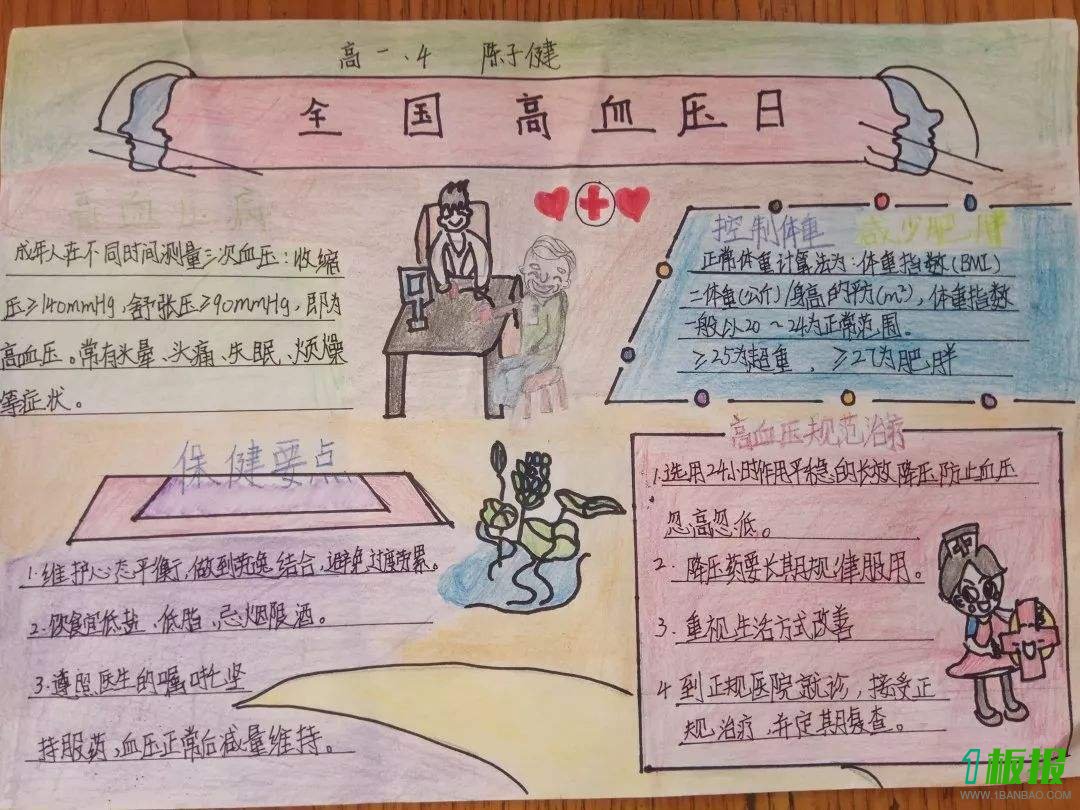 高一.4 陈子健
全国高血压日
高血压病
成年人在不同时间测量三次血压:收缩
压≥140mmHg,舒张压≥90mmHg,即为
高血压。常有头晕、头痛、失眠、烦燥
等症状。
控制体重 减少肥胖
正常体重计算法为:体重指数(BMI)
=体重(公斤)/身高的平方(m²),体重指数
一般以20~24为正常范围。
≥25为超重,≥27为肥胖
保健要点
1.维护心态平衡,做到劳逸结合,避免过度劳累。
2.饮食宜低盐、低脂,忌烟限酒。
3.遵照医生的嘱咐坚
持服药,血压正常后减量维持。
高血压规范治疗
1.选用24小时作用平稳的长效降压防止血压
忽高忽低。
2.降压药要长期规律服用。
3.重视生活方式改善
4.到正规医院就诊,接受正
规治疗,并定期复查。
1板报
WWW.1BANBAO.COM